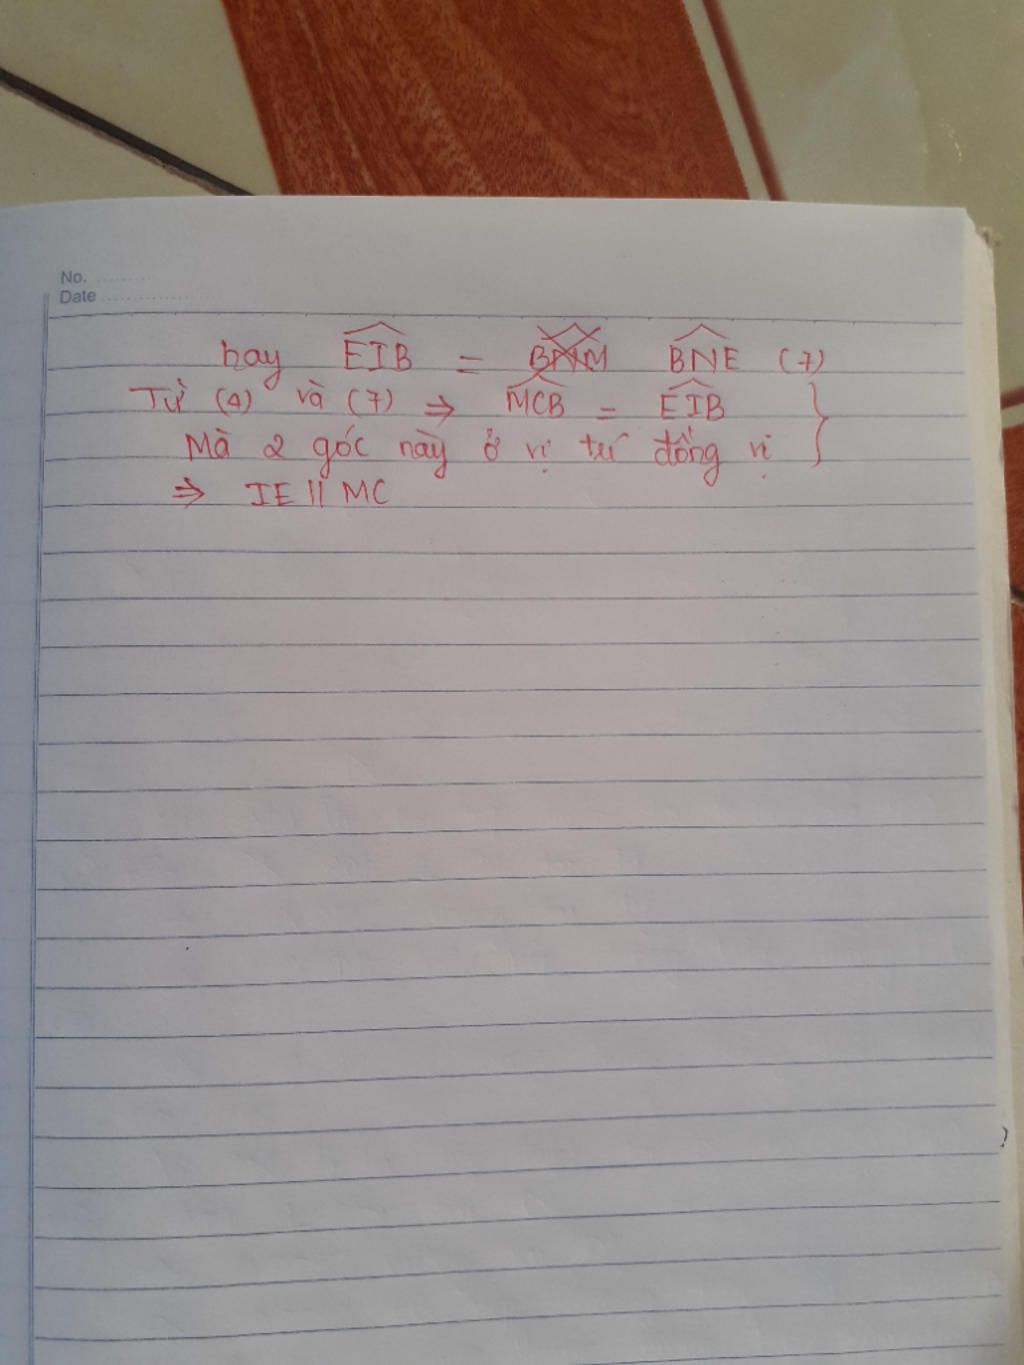 No. .........
Date ..................
hay EIB = BNE (7)
Từ (4) và (7) ⇒ MCB = EIB }
Mà 2 góc này ở vị trí đồng vị
⇒ IE // MC